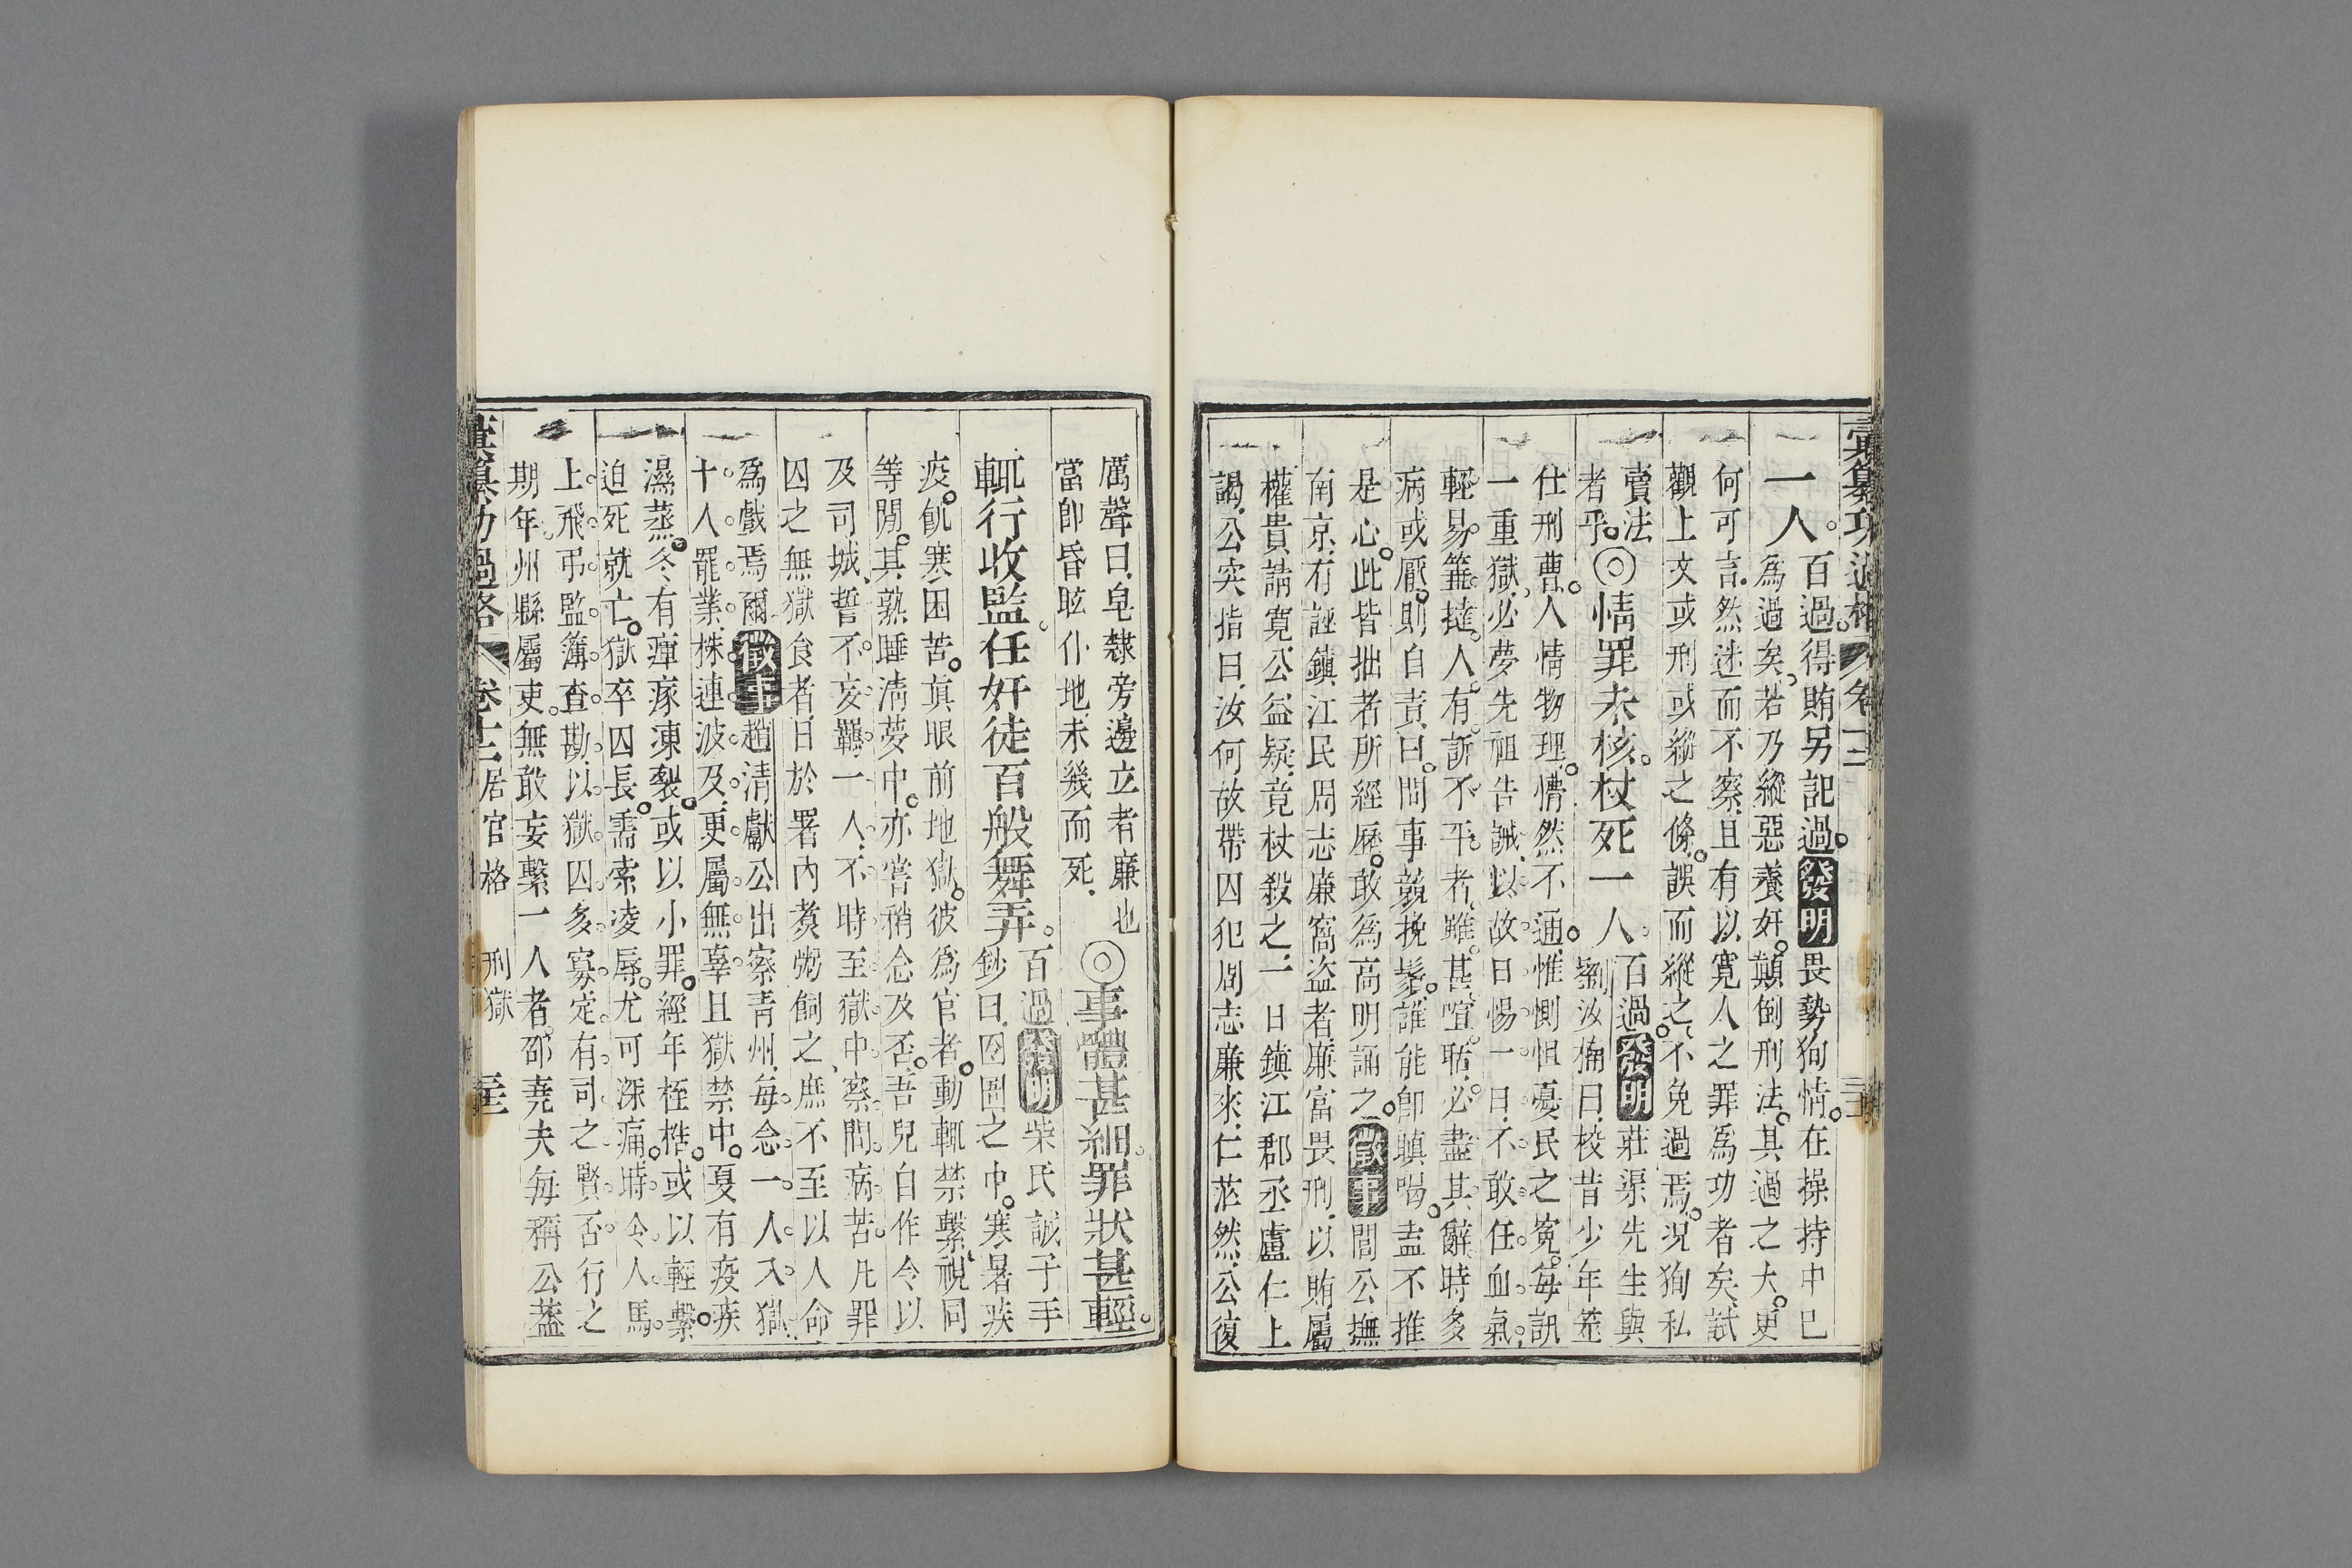 彙纂功過格 卷十二
一人。百過。得賄另記過。發明畏勢狥情。在操持中已
爲過矣。若乃縱惡養奸。顛倒刑法。其過之大。更
何可言。然迷而不察。且有以寬人之罪爲功者矣。試
觀上文或刑或縱之條。誤而縱之。不免過焉。況狥私
賣法
者乎。◎情罪未核。杖死一人。百過。發明莊渠先生與
劉汝楠曰。校昔少年筮
仕刑曹。人情物理。懵然不通。惟惻怛憂民之冤。每訊
一重獄。必夢先祖告誡。以故日惕一日。不敢任血氣。
輕易箠撻。人有訴不平者。雖甚喧聒。必盡其辭。時多
病或厭。則自責曰。問事競挽鬚。誰能卽瞋喝。盍不推
是心。此皆拙者所經歷。敢爲高明誦之。徵事閻公撫
南京。有誣鎮江民周志廉窩盜者。廉富畏刑。以賄屬
權貴請寬。公益疑。竟杖殺之。一日鎮江郡丞盧仁上
謁。公突指曰。汝何故帶囚犯周志廉來。仁茫然。公復
厲聲曰。皂隸旁邊立者廉也
當卽昏眩仆地。未幾而死。
◎事體甚細。罪狀甚輕。
輒行收監。任奸徒百般舞弄。百過發明柴氏誠子手
鈔曰。囹圄之中。寒暑疾
疫。飢寒困苦。眞眼前地獄。彼爲官者。動輒禁繫。視同
等閒。其熟睡淸夢中。亦嘗稍念及否。吾兒自作令以
及司城。誓不妄羈一人。不時至獄中。察問病苦。凡罪
囚之無獄食者。日於署內煑粥餇之。庶不至以人命
爲戲焉爾。徵事趙淸獻公出察靑州。每念一人入獄。
十人罷業。株連波及。更屬無辜。且獄禁中。夏有疫疾
濕蒸。冬有瘃凍裂。或以小罪。經年桎梏。或以輕繫。
迫死就亡。獄卒囚長。需索凌辱。尤可深痛。時令人馬
上飛弔監簿查勘。以獄囚多寡。定有司之賢否。行之
期年。州縣屬吏。無敢妄繫一人者。邵堯夫每稱公葢
彙纂功過格 卷十二 居官格 刑獄 三五